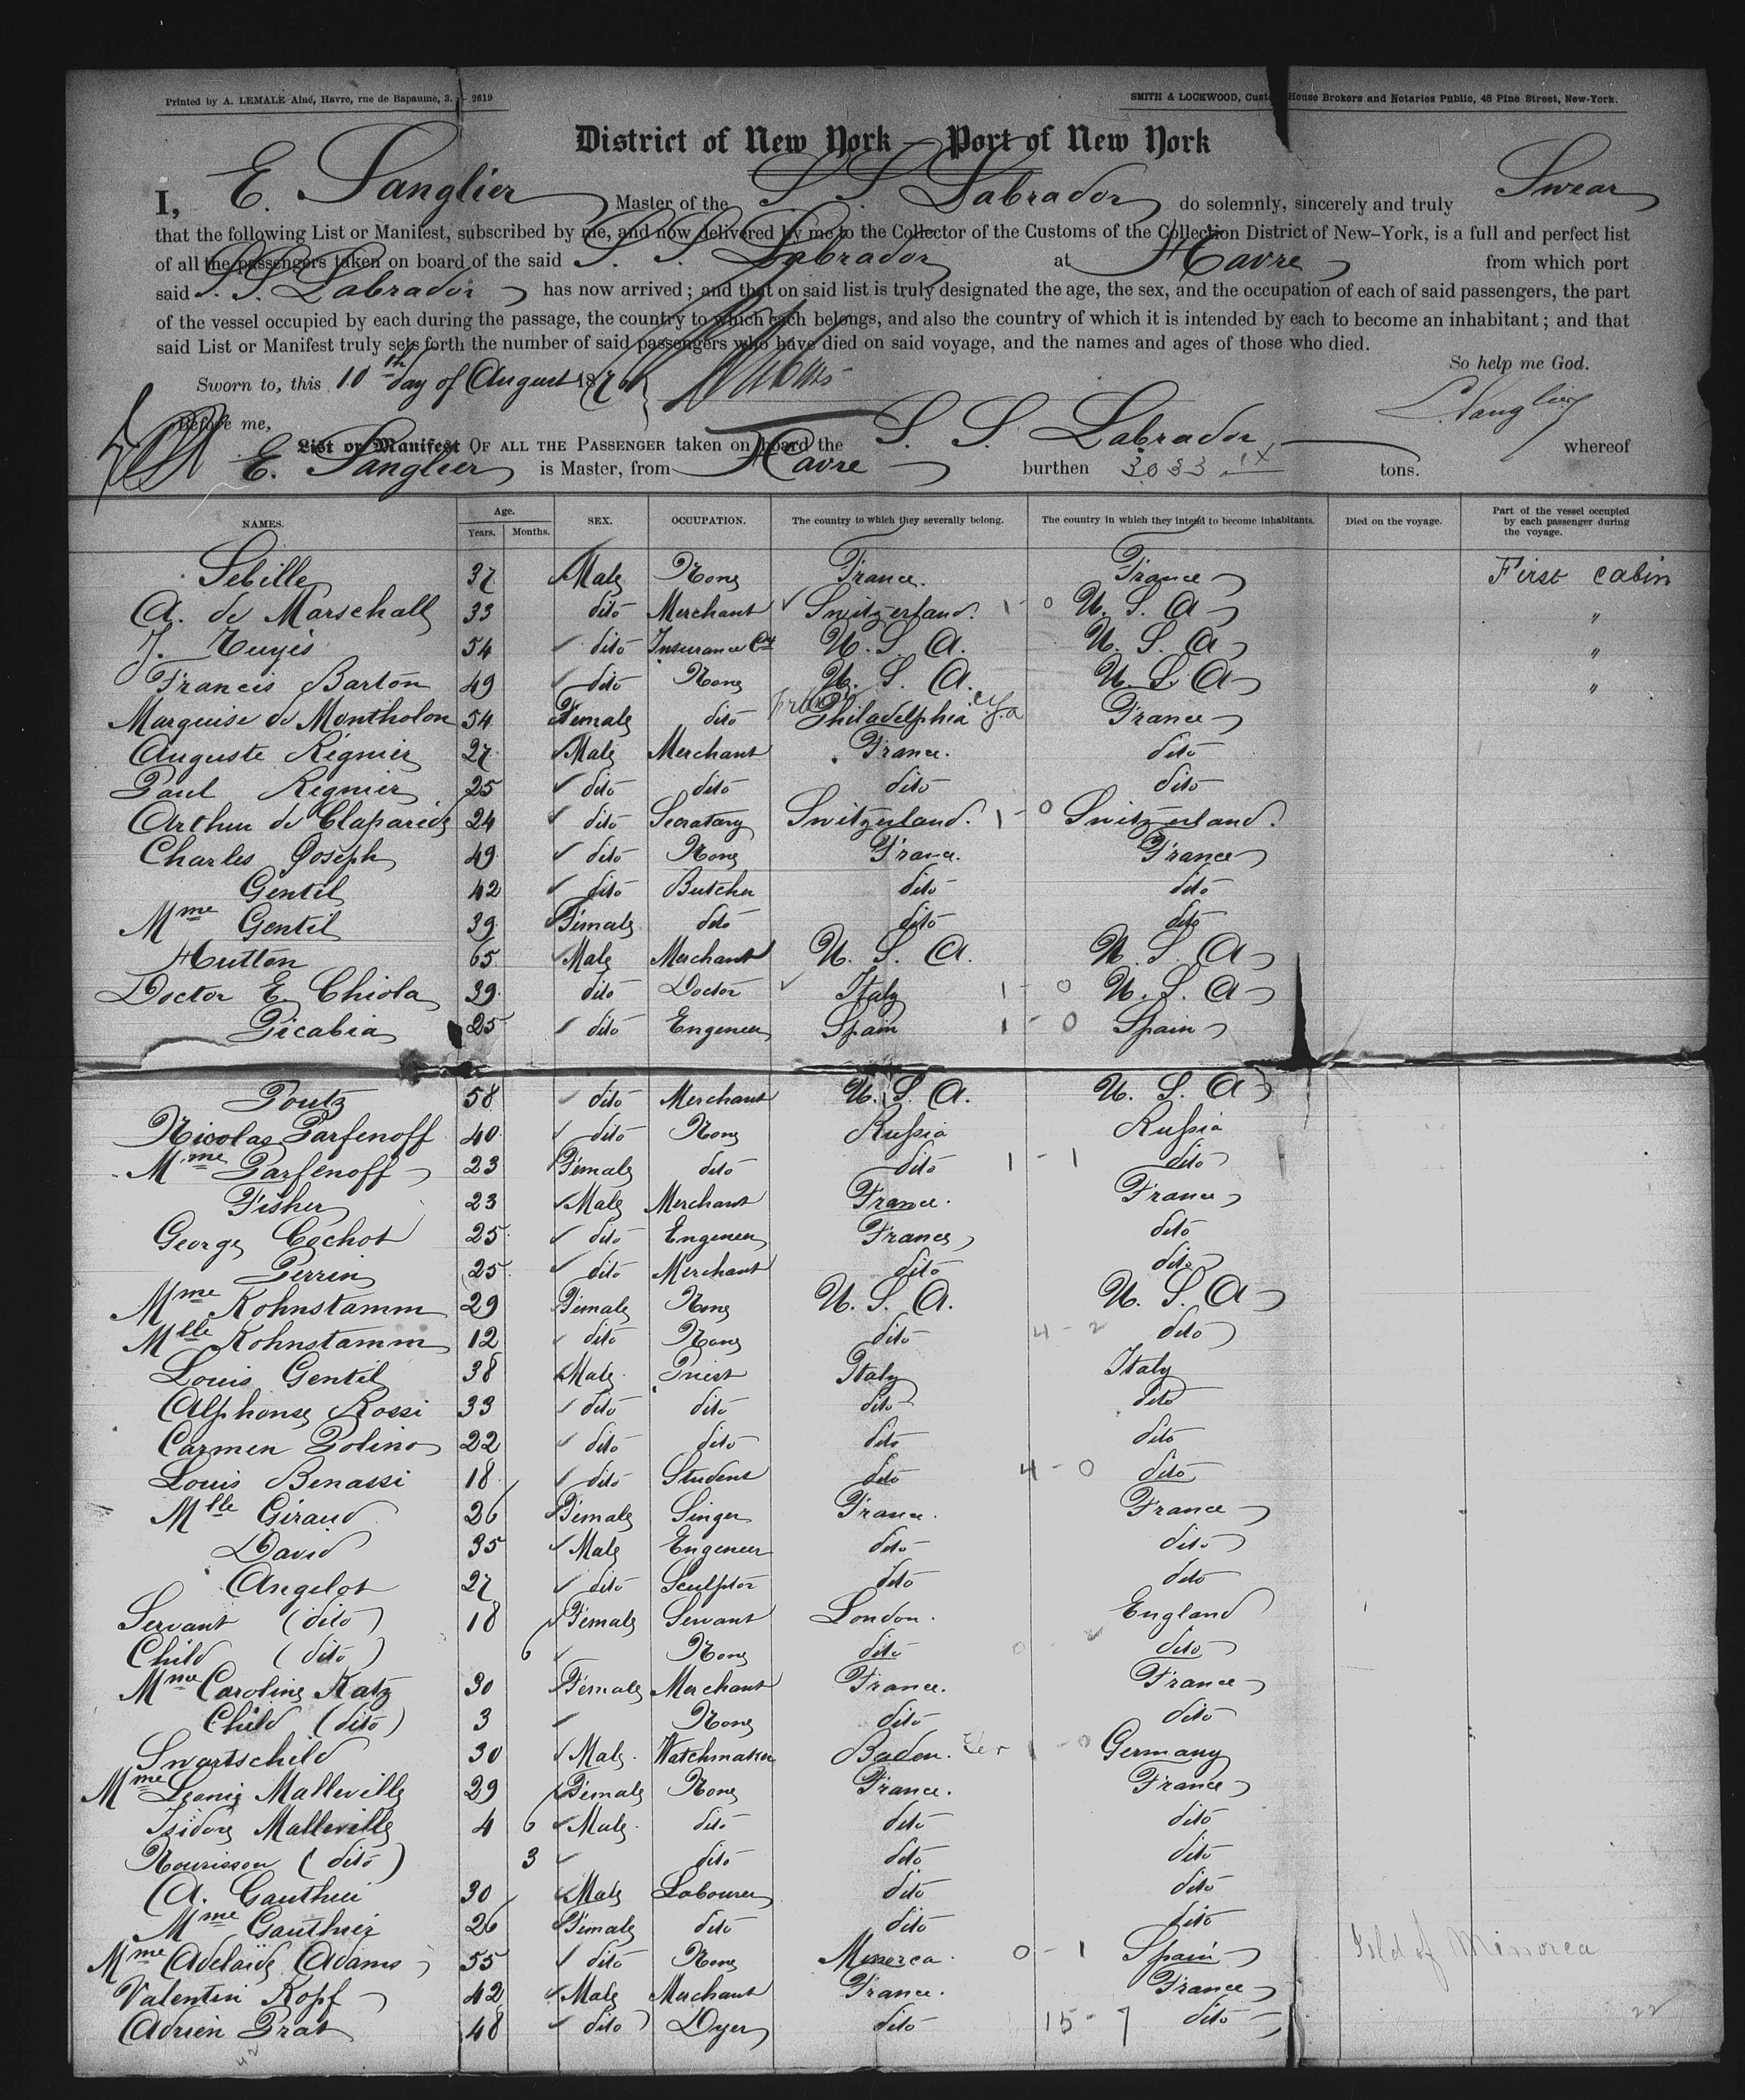 Printed by A. LEMALE Aîné, Havre, rue de Bapaume, 3. — 2619
SMITH & LOCKWOOD, Custom House Brokers and Notaries Public, 48 Pine Street, New-York.
District of New York — Port of New York
I, E. Sanglier Master of the S. S. Labrador do solemnly, sincerely and truly Swear
that the following List or Manifest, subscribed by me, and now delivered by me to the Collector of the Customs of the Collection District of New-York, is a full and perfect list
of all the passengers taken on board of the said S. S. Labrador at Havre from which port
said S. S. Labrador has now arrived; and that on said list is truly designated the age, the sex, and the occupation of each of said passengers, the part
of the vessel occupied by each during the passage, the country to which each belongs, and also the country of which it is intended by each to become an inhabitant; and that
said List or Manifest truly sets forth the number of said passengers who have died on said voyage, and the names and ages of those who died.
So help me God.
Sworn to, this 10th day of August 1876
Before me, E. Sanglier
List or Manifest OF ALL THE PASSENGER taken on board the S. S. Labrador whereof
E. Sanglier is Master, from Havre burthen 3033 tons.
NAMES. Age. Years. Months. SEX. OCCUPATION. The country to which they severally belong. The country in which they intend to become inhabitants. Died on the voyage. Part of the vessel occupied by each passenger during the voyage.
Sebille 37 Male None France. France First cabin
A. de Marschall 33 dito Merchant Switzerland. 1 - 0 U. S. A "
J. 54 dito Insurance U. S. A. U. S. A "
Francis Barton 49 dito None U. S. A. U. S. A "
Marquise de Montholon 54 Female dito Philadelphia France
Auguste Régnier 27 Male Merchant France. dito
Paul Regnier 25 dito dito dito dito
Arthur de Claparède 24 dito Secratary Switzerland. 1 - 0 Switzerland.
Charles Joseph 49 dito None France. France
Gentil 42 dito Butcher dito dito
Mme Gentil 39 Female dito dito dito
Hutton 65 Male Merchant U. S. A. U. S. A
Doctor E. Chiola 39 dito Doctor Italy 1 - 0 U. S. A
Picabia 25 dito Engeneer Spain 1 - 0 Spain
Poutz 58 dito Merchant U. S. A. U. S. A
Nicolas Parfenoff 40 dito None Russia Russia
Mme Parfenoff 23 Female dito dito 1 - 1 dito
Fisher 23 Male Merchant France. France
George Cochot 25 dito Engeneer France dito
Perrin 25 dito Merchant dito dito
Mme Kohnstamm 29 Female None U. S. A. U. S. A
Mlle Kohnstamm 12 dito None dito 4 - 2 dito
Louis Gentil 38 Male Priest Italy Italy
Alphonse Rossi 33 dito dito dito dito
Carmen Polino 22 dito dito dito dito
Louis Benassi 18 dito Student dito 4 - 0 dito
Mlle Giraud 26 Female Singer France. France
David 35 Male Engeneer dito dito
Angelot 27 dito Sculptor dito dito
Servant (dito) 18 Female Servant London. England
Child (dito) 6 None dito dito
Mme Caroline Katz 30 Female Merchant France. France
Child (dito) 3 None dito dito
Swartschild 30 Male Watchmaker Baden. 1 - 0 Germany
Mme Léonie Malleville 29 Female None France. France
Isidore Malleville 4 6 Male dito dito dito
Nourisson (dito) 3 dito dito dito
A. Gauthier 30 Male Labourer dito dito
Mme Gauthier 26 Female dito dito dito
Mme Adelaïde Adams 55 dito None Minorca 0 - 1 Spain Isld of Minorca
Valentin Kopf 42 Male Merchant France. France
Adrien Prat 48 dito Dyer dito 15 - 7 dito 22
42